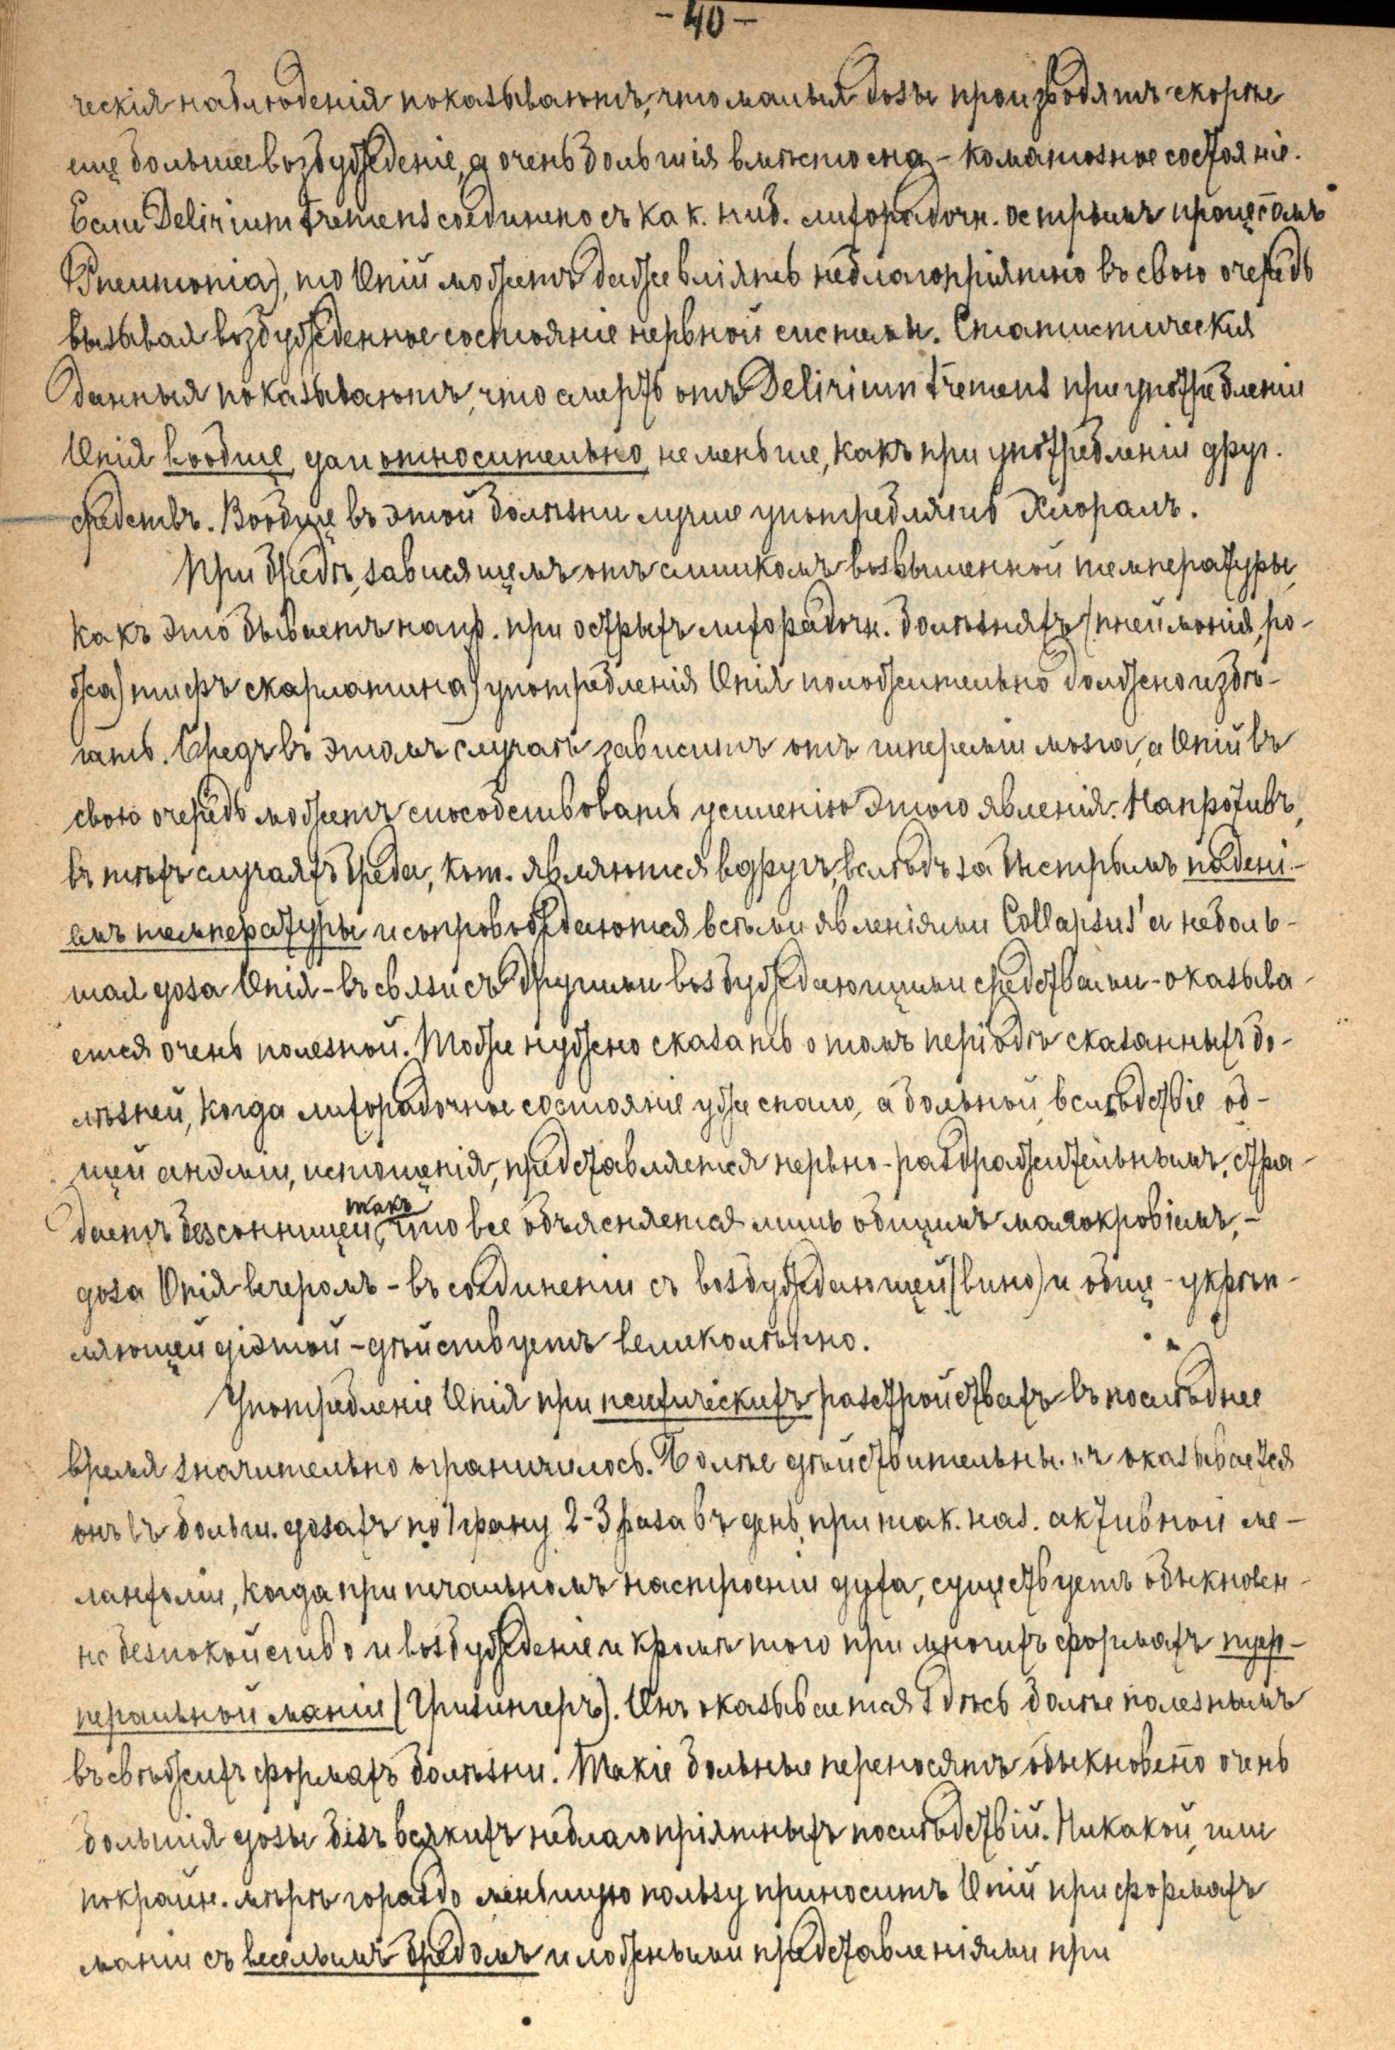 -40-
ческія наблюденія показываютъ, что малыя дозы производятъ скорѣе
еще большее возбужденіе, а очень большія вмѣсто сна - коматозное состояніе.
Если Delirium tremens соединено съ как. ниб. лихорадочн. острымъ процессомъ
(Pneumonia), то Опій можетъ даже вліять неблагопріятно въ свою очередь
вызывая возбужденное состояніе нервной системы. Статистическія
данныя показываютъ, что смерть отъ Delirium tremens при употребленіи
Опія вообще, дал относительно не меньше, какъ при употребленіи друг.
средствъ. Вообще въ этой болѣзни лучше употреблять Хлоралъ.
При бредѣ, зависящемъ отъ слишкомъ возвышенной температуры,
какъ это бываетъ напр. при острыхъ лихорадочн. болѣзняхъ (пнеймонія, ро-
жа) тифъ скарлатина) употребленія Опія положительно должно избѣ-
гать. Бредъ въ этомъ случаѣ зависитъ отъ гипереміи мозга, а Опій въ
свою очередь можетъ способствовать усиленію этого явленія. Напротивъ,
въ тѣхъ случаяхъ бреда, кот. являются вдругъ, вслѣдъ за быстрымъ паденi-
емъ температуры и сопровождаются всѣми явленіями Collapsus'а неболь-
шая доза Опія - въ связи съ другими возбуждающими средствами - оказыва-
ется очень полезной. Тоже нужно сказать о томъ періодѣ сказанныхъ бо-
лѣзней, когда лихорадочное состояніе уже спало, а больной, вслѣдствіе об-
щей анэміи, истощенія, представляется нервно-раздражительнымъ, стра-
даетъ безсонницей, такъ что все объясняется лишь общимъ малокровіемъ, -
доза Опія вечеромъ - въ соединеніи съ возбуждающей (вино) и обще-укрѣп-
ляющей діэтой - дѣйствуетъ великолѣпно.
Употребленіе Опія при психическихъ разстройствахъ въ послѣднее
время значительно ограничилось. Болѣе дѣйствительнымъ оказывается
онъ въ больш. дозахъ по 1 грану 2-3 раза въ день, при так. наз. активной ме-
ланхоліи, когда при печальномъ настроеніи духа, существуетъ обыкновен-
но безпокойство и возбужденіе и кромѣ того при многихъ формахъ пуэр-
перальной маніи (Гризингеръ). Онъ оказывается здѣсь болѣе полезнымъ
въ свѣжихъ формахъ болѣзни. Такіе больные переносятъ обыкновенно очень
большія дозы безъ всякихъ неблагопріятныхъ послѣдствій. Никакой, или
покрайн. мѣрѣ гораздо меньшую пользу приноситъ Опій при формахъ
маніи съ веселымъ бредомъ и ложными представленіями при